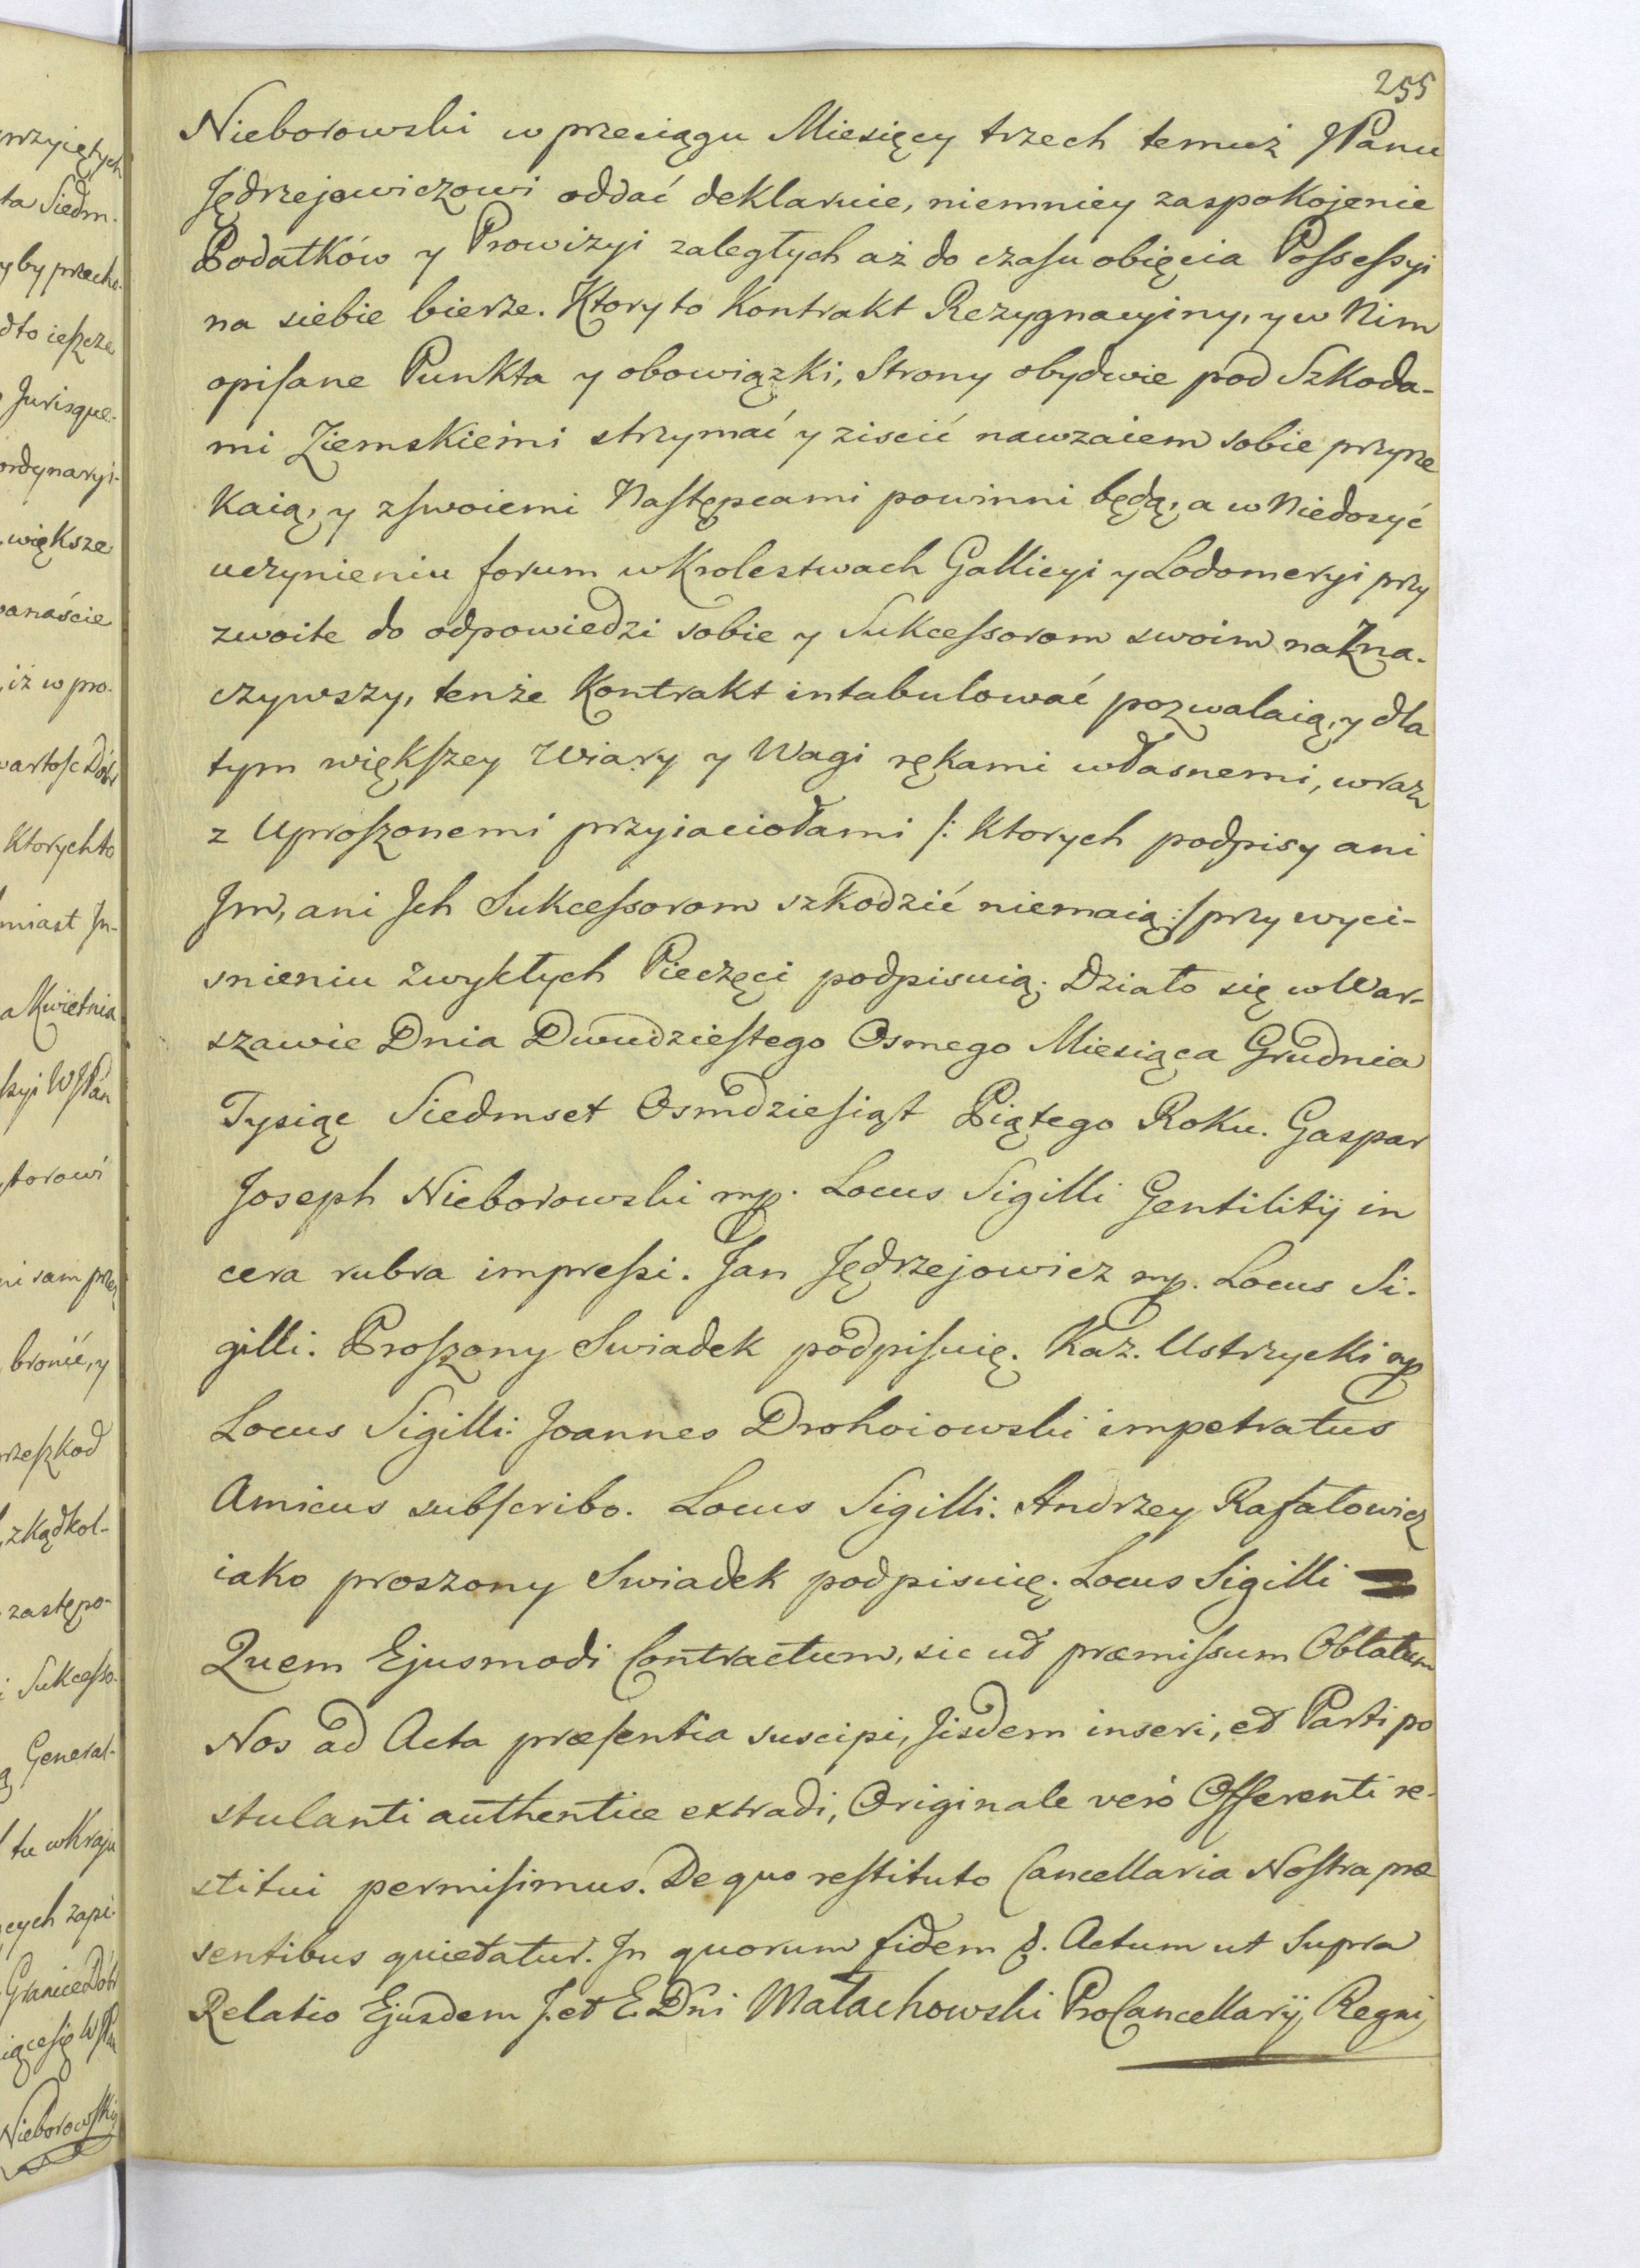 255
Nieborowski w przeciągu Miesięcy trzech temuż JPanu
Jędrzejewiczowi oddać deklaruie, niemniey zaspokojenie
Podatków y Prowizyi zaległych aż do czasu obięcia Possessyi
na siebie bierze. Ktory to Kontrakt Rezygnacyiny, y w Nim
opisane Punkta y obowiązki, Strony obydwie pod Szkoda-
mi Ziemskiemi strzymać y ziscić nawzaiem sobie przyrze
Kaią, y zswoiemi Następcami powinni będą, a w Niedosyć
uczynieniu forum w Krolestwach Gallicyi y Lodomeryi przy
zwoite do odpowiedzi sobie y Sukcessorom swoim naZna-
czywszy, tenże Kontrakt intabulować pozwalaią, y dla
tym większey Wiary y Wagi rękami własnemi, wraz
z Uproszonemi przyiaciołami /: Ktorych podpisy ani
Jm, ani Jch Sukcessorom szkodzić niemaią :/ przy wyci-
snieniu zwykłych Pieczęci podpisuią. Działo się w War-
szawie Dnia Dwudziestego Osmego Miesiąca Grudnia
Tysiąc Siedmset Osmdziesiąt Piątego Roku. Gaspar
Joseph Nieborowski mp. Locus Sigilli Gentilitij in
cera rubra impressi. Jan Jędrzejowicz mp. Locus Si-
gilli. Proszony Swiadek podpisuię. Kaz. Ustrzycki mp
Locus Sigilli. Joannes Drohoiowski impetratus
Amicus subscribo. Locus Sigilli. Andrzey Rafałowicz
iako proszony Swiadek podpisuię. Locus Sigilli
Quem Ejusmodi Contractum, sic ut præmissum Oblatum
Nos ad Acta præsentia suscipi, Jisdem inseri, et Parti po
stulanti authentice extradi, Originale verò Offerenti re-
stitui permisimus. De quo restituto Cancellaria Nostra præ
sentibus quietatur. Jn quorum fidem &. Actum ut Supra
Relatio Ejusdem J. et E. Dni Małachowski ProCancellarij Regni